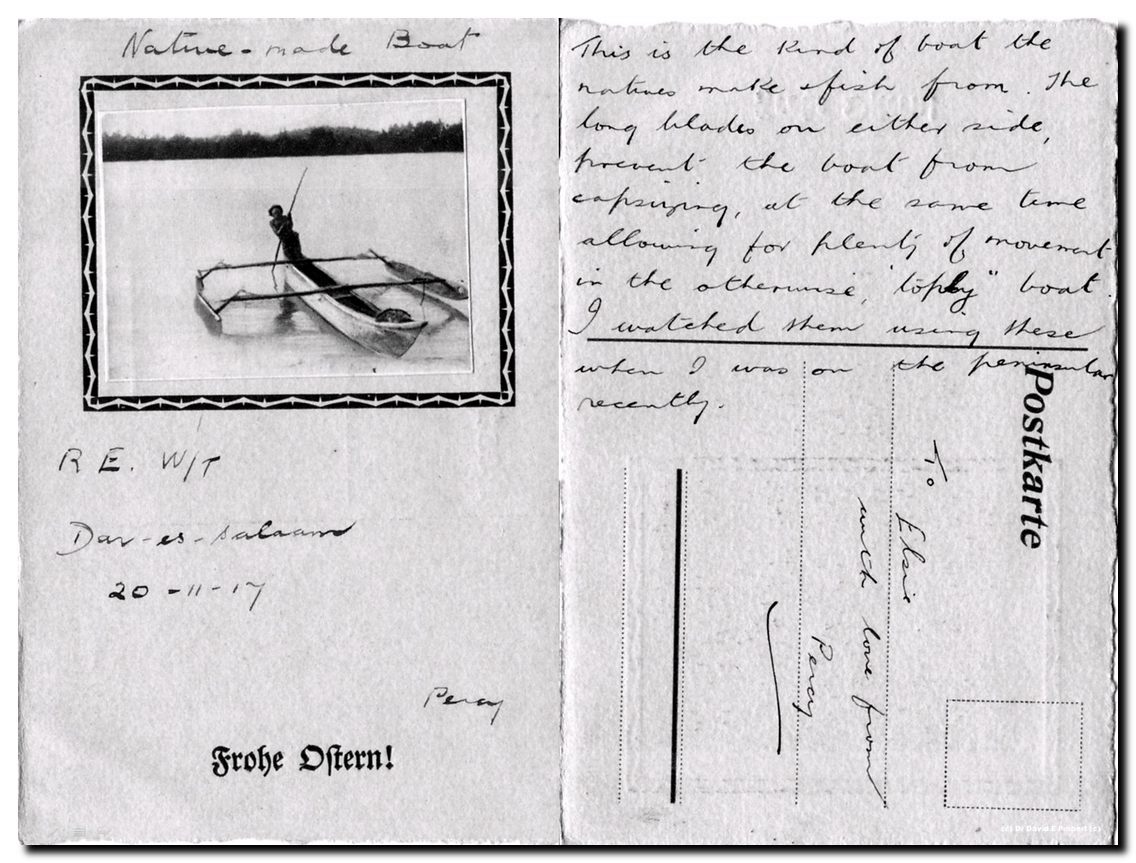 Native-made Boat
R E. W/T
Dar-es-salaam
20-11-17
Percy
Frohe Ostern!
This is the kind of boat the
natives make & fish from. The
long blades on either side,
prevent the boat from
capsizing, at the same time
allowing for plenty of movement
in the otherwise, "toply" boat.
I watched them using these
when I was on the peninsular
recently.
Postkarte
To Elsie
with love from
Percy
(c) Dr David E Probert (c)